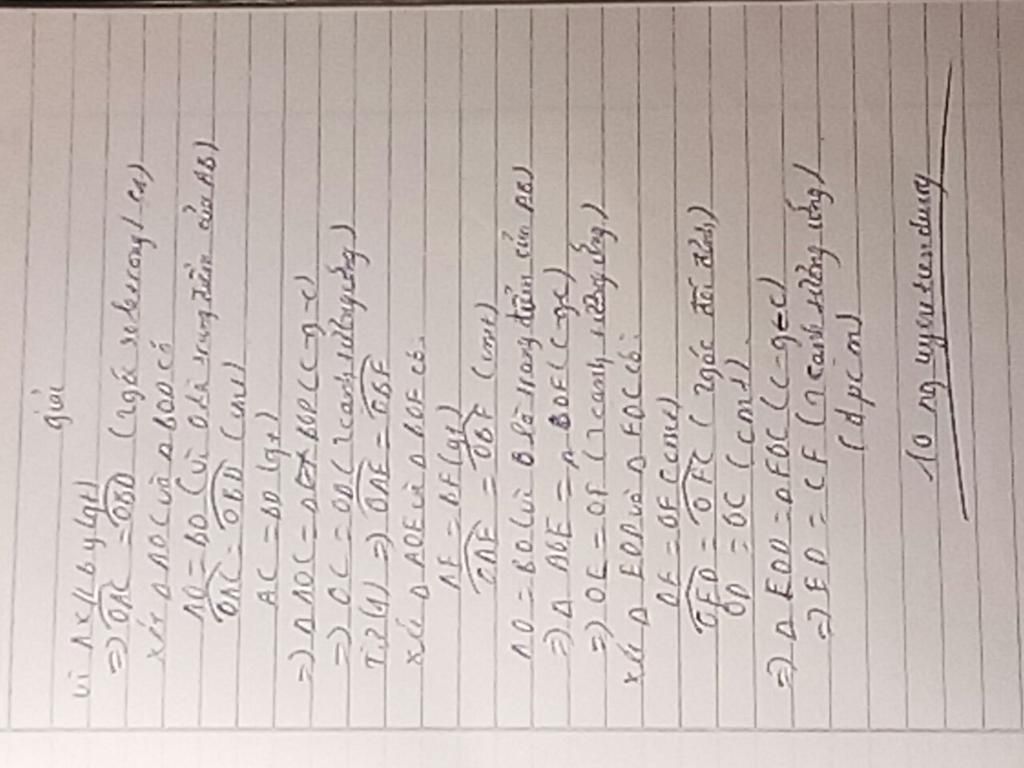 giải
Vì Ax // By (gt)
=) OAC = OBD (2 góc so le trong) (1)
xét Δ AOC và Δ BOD có
AO = BO (vì O là trung điểm của AB)
OAC = OBD (cmt)
AC = BD (gt)
=) Δ AOC = Δ BOD (c-g-c)
=) OC = OD (2 cạnh tương ứng)
Từ (1) =) OAE = OBF
xét Δ AOE và Δ BOF có:
AE = BF (gt)
OAE = OBF (cmt)
AO = BO (vì O là trung điểm của AB)
=) Δ AOE = Δ BOF (c-g-c)
=) OE = OF (2 cạnh tương ứng)
xét Δ EOD và Δ FOC có:
OE = OF (cmt)
= (2 góc đối đỉnh)
OD = OC (cmt)
=) Δ EOD = Δ FOC (c-g-c)
=) ED = CF (2 cạnh tương ứng)
(đpcm)